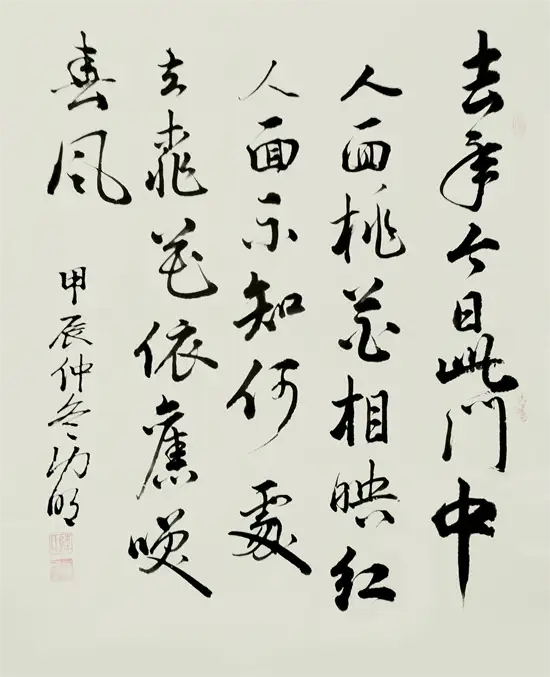 去年今日此门中
人面桃花相映红
人面不知何处
去桃花依旧笑
春风
甲辰仲冬功明